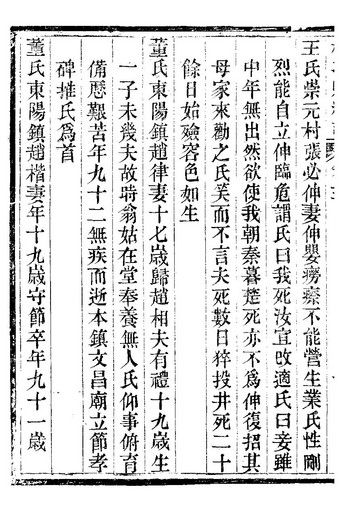 王氏崇元村張必伸妻伸嬰癆瘵不能營生業氏性剛
烈能自立伸臨危謂氏曰我死汝宜改適氏曰妾雖
中年無出然欲使我朝秦暮楚死亦不為伸復招其
母家來勸之氏笑而不言夫死數日猝投井死二十
餘日始殮容色如生
董氏東陽鎮趙律妻十七歲歸趙相夫有禮十九歲生
一子未幾夫故時翁姑在堂奉養無人氏仰事俯育
備歷艱苦年九十二無疾而逝本鎮文昌廟立節孝
碑推氏爲首
董氏東陽鎮趙楷妻年十九歲守節卒年九十一歲